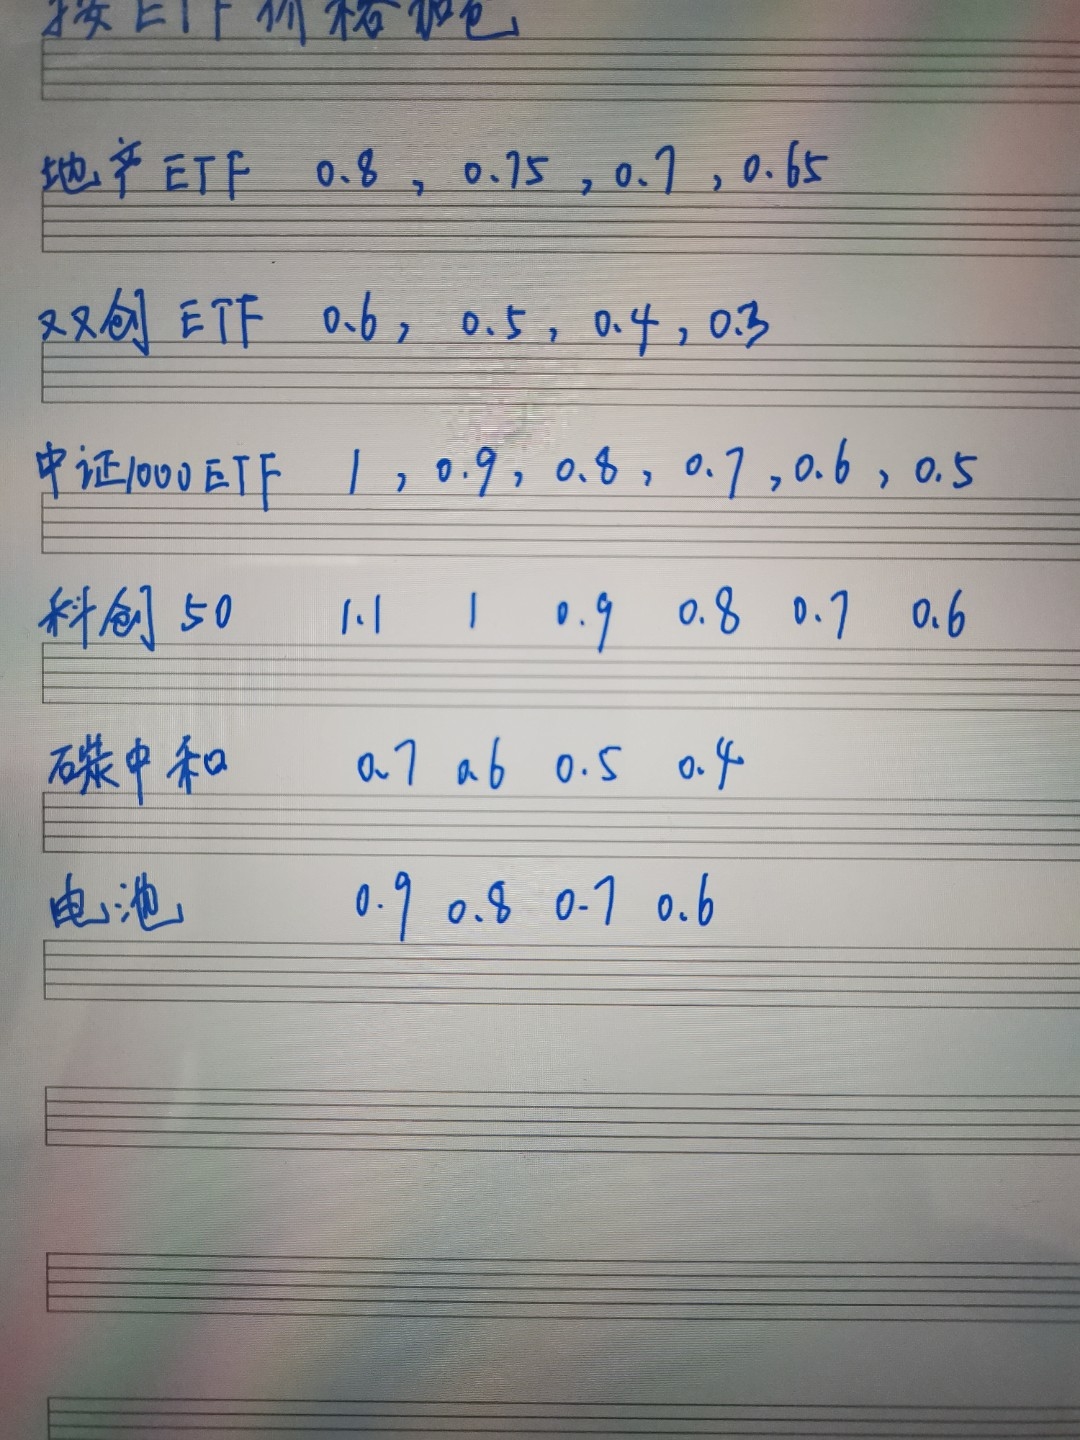 按ETF价格加仓
地产ETF 0.8, 0.75, 0.7, 0.65
双创ETF 0.6, 0.5, 0.4, 0.3
中证1000ETF 1, 0.9, 0.8, 0.7, 0.6, 0.5
科创50 1.1 1 0.9 0.8 0.7 0.6
碳中和 0.7 0.6 0.5 0.4
电池 0.9 0.8 0.7 0.6